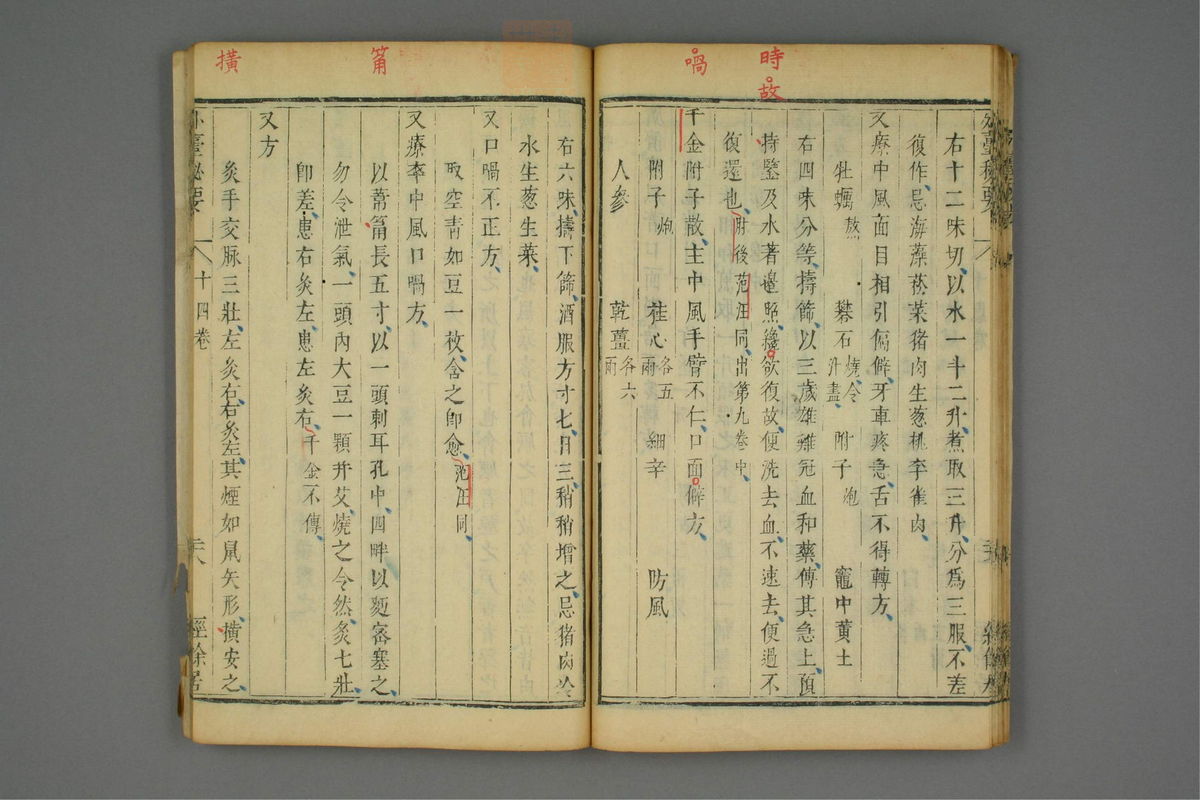 時故
喎
右十二味切以水一斗二升煮取三升分為三服不差
復作忌海藻菘菜猪肉生葱桃李雀肉
又療中風面目相引偏僻牙車疼急舌不得轉方
牡蠣熬 礬石燒令汁盡 附子炮 竈中黄土
右四味分等擣篩以三歲雄雞冠血和藥傅其急上預
持鏧及水著邊照纔欲復故便洗去血不速去便過不
復還也肘後范汪同出第九卷中
千金附子散主中風手臂不仁口面僻方
附子炮 桂心各五兩 細辛 防風
人參 乾薑各六兩
篅
撗
右六味擣下篩酒服方寸匕日三稍稍增之忌猪肉冷
水生葱生菜
又口喎不正方
取空青如豆一枚含之即愈范汪同
又療卒中風口喎方
以葦篅長五寸以一頭刺耳孔中四畔以麪密塞之
勿令泄氣一頭內大豆一顆并艾燒之令然灸七壯
即差患右灸左患左灸右千金不傳
又方
灸手交脉三壯左灸右右灸左其煙如鼠矢形撗安之
外臺秘要 十四卷 二十八 經餘居